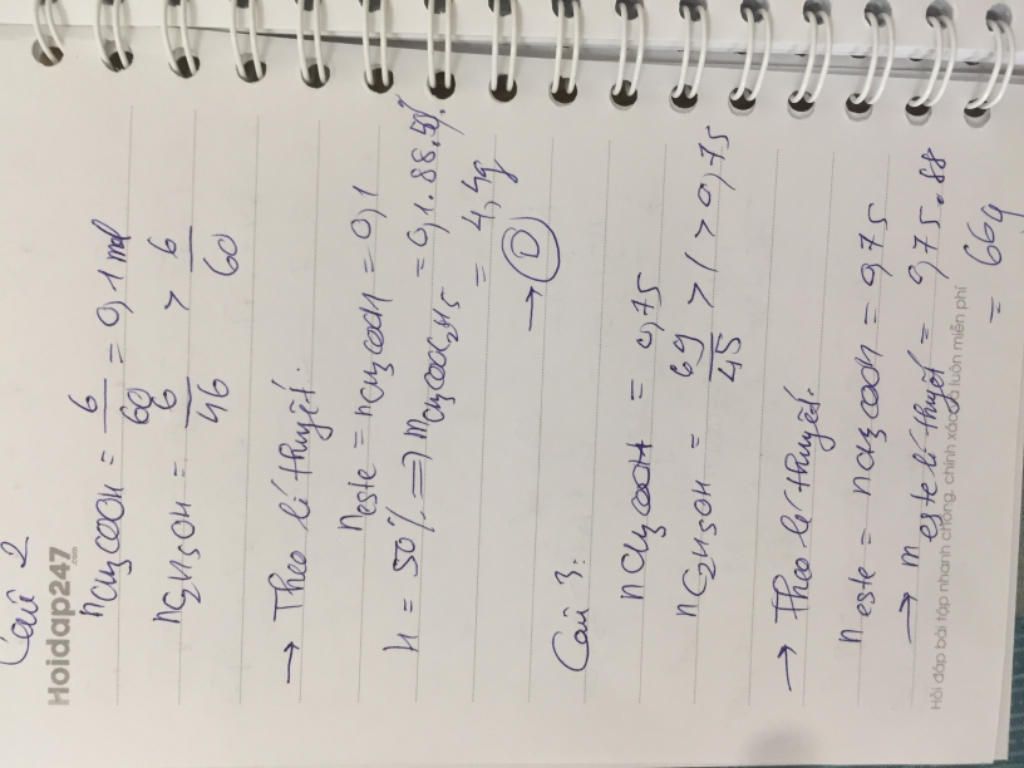 Câu 2
Hoidap247
.com
nCH3COOH = 6/60 = 0,1 mol
nC2H5OH = 6/46 > 6/60
→ Theo lí thuyết.
neste = nCH3COOH = 0,1
H = 50% => mCH3COOC2H5 = 0,1.88.50%
= 4,4g
→ D
Câu 3:
nCH3COOH = 0,75
nC2H5OH = 69/45 > 1 > 0,75
→ Theo lí thuyết.
neste = nCH3COOH = 0,75
→ m este lí thuyết = 0,75.88
= 66g
Hỏi đáp bài tập nhanh chóng, chính xác và luôn miễn phí